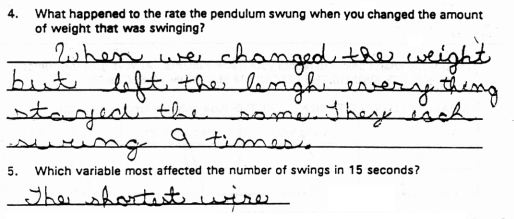 4. What happened to the rate the pendulum swung when you changed the amount
of weight that was swinging?
When we changed the weight
but left the lengh everything
stayed the same. They each
swung 9 times.
5. Which variable most affected the number of swings in 15 seconds?
The shortest wire